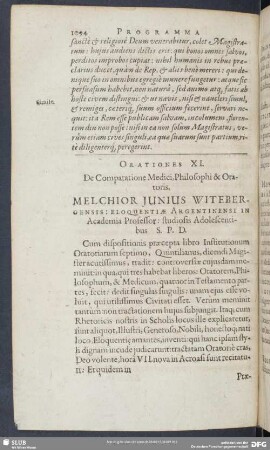 1044 PROGRAMMA
sancte & religiose Deum venerabitur, colet Magistra-
tum: hujus auditor dicto erit: qui bonus omnes salvos,
perditos improbos cupiat: nihil humanis in rebus præ-
clarius ducat, quàm de Rep. & aliis benè mereri: qui de-
nique suo in omnibus egregiè munere fungatur: at-que se
persuasum habebit, non naturâ, sed animo atq, factis ab
hoste civem distingui: & ut navis, nisi & nautæ sint,
& remiges, ceteriq, suum officium facerint, servari ne-
quit: ita Rem esse publicam salvam, incolumem, floren-
tem diu non posse: nisi in ea non solùm Magistratus, ve-
rùm etiam cives singuli, ea quæ suarum sunt partium, ri-
tè diligenterq, peregerint.
ORATIONES XI.
De Comparatione Medici, Philosophi & Ora-
toris.
MELCHIOR JUNIUS WITEBER-
GENSIS: ELOQUENTIÆ ARGENTINENSI IN
Academia Professor: studiosis Adolescenti-
bus S. P. D.
Cum dispositionis præcepta libro Institutionum
Oratoriarum septimo, Quintilianus, dicendi Magi-
ster acutissimus, tradit: controversiæ cujusdam me-
minit: in qua, qui tres habebat liberos: Oratorem, Phi-
losophum, & Medicum, quatuor in Testamento par-
tes, fecit: dedit singulas singulis: unam ejus esse vo-
luit, qui utilissimus Civitati esset. Verùm meminit
tantùm non tractationem hujus subjungit. Itaq; cum
Rhetoricis nostris in Scholis locus ille explicaretur,
sunt aliquot, Illustris, Generosi, Nobili, honestoq; nati
loco, Eloquentiæ amantes, inventi: qui hanc ipsam sty-
li dignam incude judicarunt: tractatam Oratoriè cras,
Deo volente, horâ VII. nova in Acroasi sunt recitatu-
ri: Etquidem in
Ptæ-
SLUB
DFG